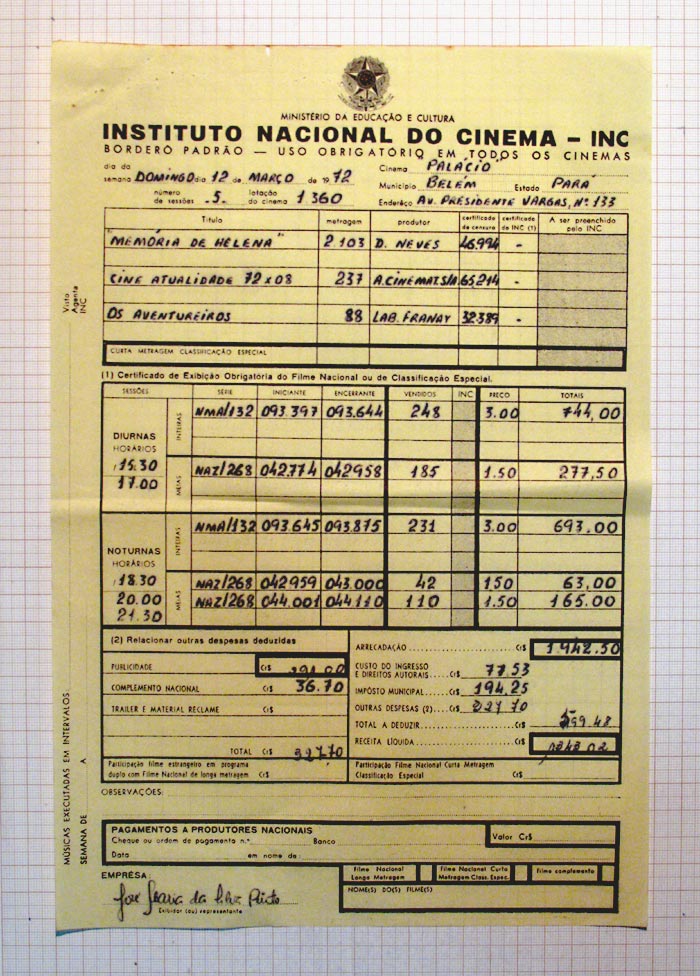 MINISTÉRIO DA EDUCAÇÃO E CULTURA
INSTITUTO NACIONAL DO CINEMA — INC
BORDERÔ PADRÃO — USO OBRIGATÓRIO EM TODOS OS CINEMAS
dia da semana DOMINGO dia 12 de MARÇO de 1972 Cinema "PALÁCIO"
Município BELÉM Estado PARÁ
número de sessões .5. lotação do cinema 1360 Enderêço AV. PRESIDENTE VARGAS, Nº 133
Título metragem produtor certificado de censura certificado do INC (1) A ser preenchido pelo INC
"MEMÓRIA DE HELENA" 2.103 D. NEVES 46994 -
CINE ATUALIDADE 72x08 237 A.CINEMATS/A 65.214 -
OS AVENTUREIROS 88 LAB. FRANAY 32389 -
CURTA METRAGEM CLASSIFICAÇÃO ESPECIAL
(1) Certificado de Exibição Obrigatória do Filme Nacional ou de Classificação Especial.
SESSÕES SÉRIE INICIANTE ENCERRANTE VENDIDOS INC PREÇO TOTAIS
DIURNAS HORÁRIOS
15.30
17.00
INTEIRAS NMA/132 093.397 093.644 248 3.00 744,00
MEIAS NAZ/268 042.774 042958 185 1.50 277,50
NOTURNAS HORÁRIOS
18.30
20.00
21.30
INTEIRAS NMA/132 093.645 093.875 231 3.00 693.00
MEIAS NAZ/268 042959 043.000 42 150 63,00
NAZ/268 044.001 044110 110 1.50 165.00
(2) Relacionar outras despesas deduzidas
PUBLICIDADE Cr$
COMPLEMENTO NACIONAL Cr$ 36.70
TRAILER E MATERIAL RECLAME Cr$
TOTAL Cr$
Participação filme estrangeiro em programa
duplo com Filme Nacional de longa metragem Cr$
ARRECADAÇÃO Cr$ 1.942.50
CUSTO DO INGRESSO
E DIREITOS AUTORAIS Cr$ 77.53
IMPÔSTO MUNICIPAL Cr$ 194,25
OUTRAS DESPESAS (2) Cr$
TOTAL A DEDUZIR Cr$
RECEITA LÍQUIDA Cr$
Participação Filme Nacional Curta Metragem
Classificação Especial Cr$
OBSERVAÇÕES:
PAGAMENTOS A PRODUTORES NACIONAIS
Cheque ou ordem de pagamento n.º Banco Valor Cr$
Data em nome da:
EMPRÊSA:
Exibidor (ou) representante
Filme Nacional Longa Metragem
Filme Nacional Curta Metragem Class. Espec.
Filme complemento
NOME(S) DO(S) FILME(S)
Visto Agente INC
MÚSICAS EXECUTADAS EM INTERVALOS
SEMANA DE A